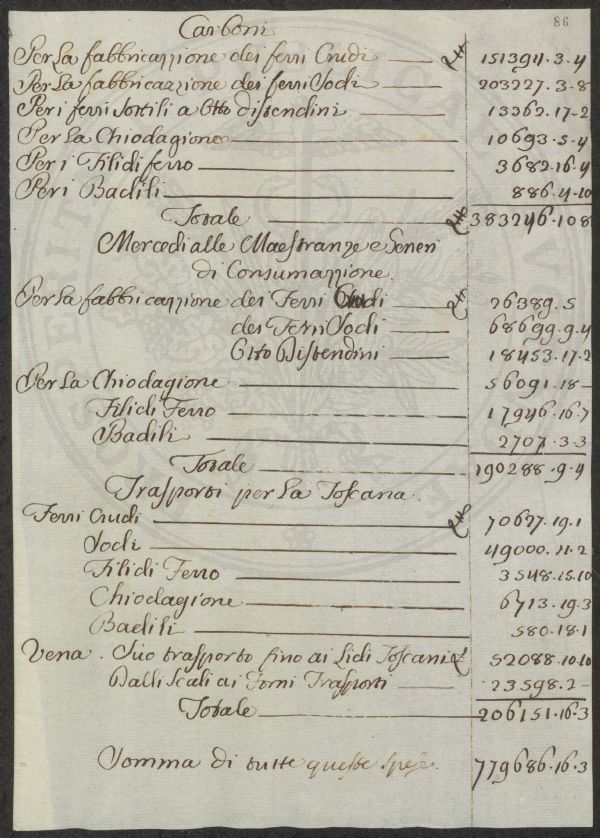 86
Carboni
Per la fabbricazzione dei ferri Crudi 151394.3.4
Per la fabbricazzione dei ferri Sodi 203227.3-8
Per i ferri sottili a Otto distendini 13362.17-2
Per la Chiodagione 10693.5-4
Per i Fili di ferro 3682.16.4
Per i Badili 886.4-10
Totale 383246.10 8
Mercedi alle Maestranze e Generi
di Consumazzione
Per la fabbricazzione dei Ferri Crudi 26389.5
dei Ferri Sodi 68699.9-4
Otto Distendini 18453.17.2
Per la Chiodagione 56091.18-
Fili di Ferro 17946.16.7
Badili 2707.3.3
Totale 190288.9-4
Trasporti per la Toscana
Ferri Crudi 70627.19.1
Sodi 49000.11-2
Fili di Ferro 3548.15.10
Chiodagione 6713.19.3
Badili 580.18.1
Vena. Suo trasporto fino ai Lidi Toscani 52088.10.10
Dalli Scali ai Forni Trasporti 23598.2-
Totale 206151.16.3
Somma di tutte queste spese 779686.16.3